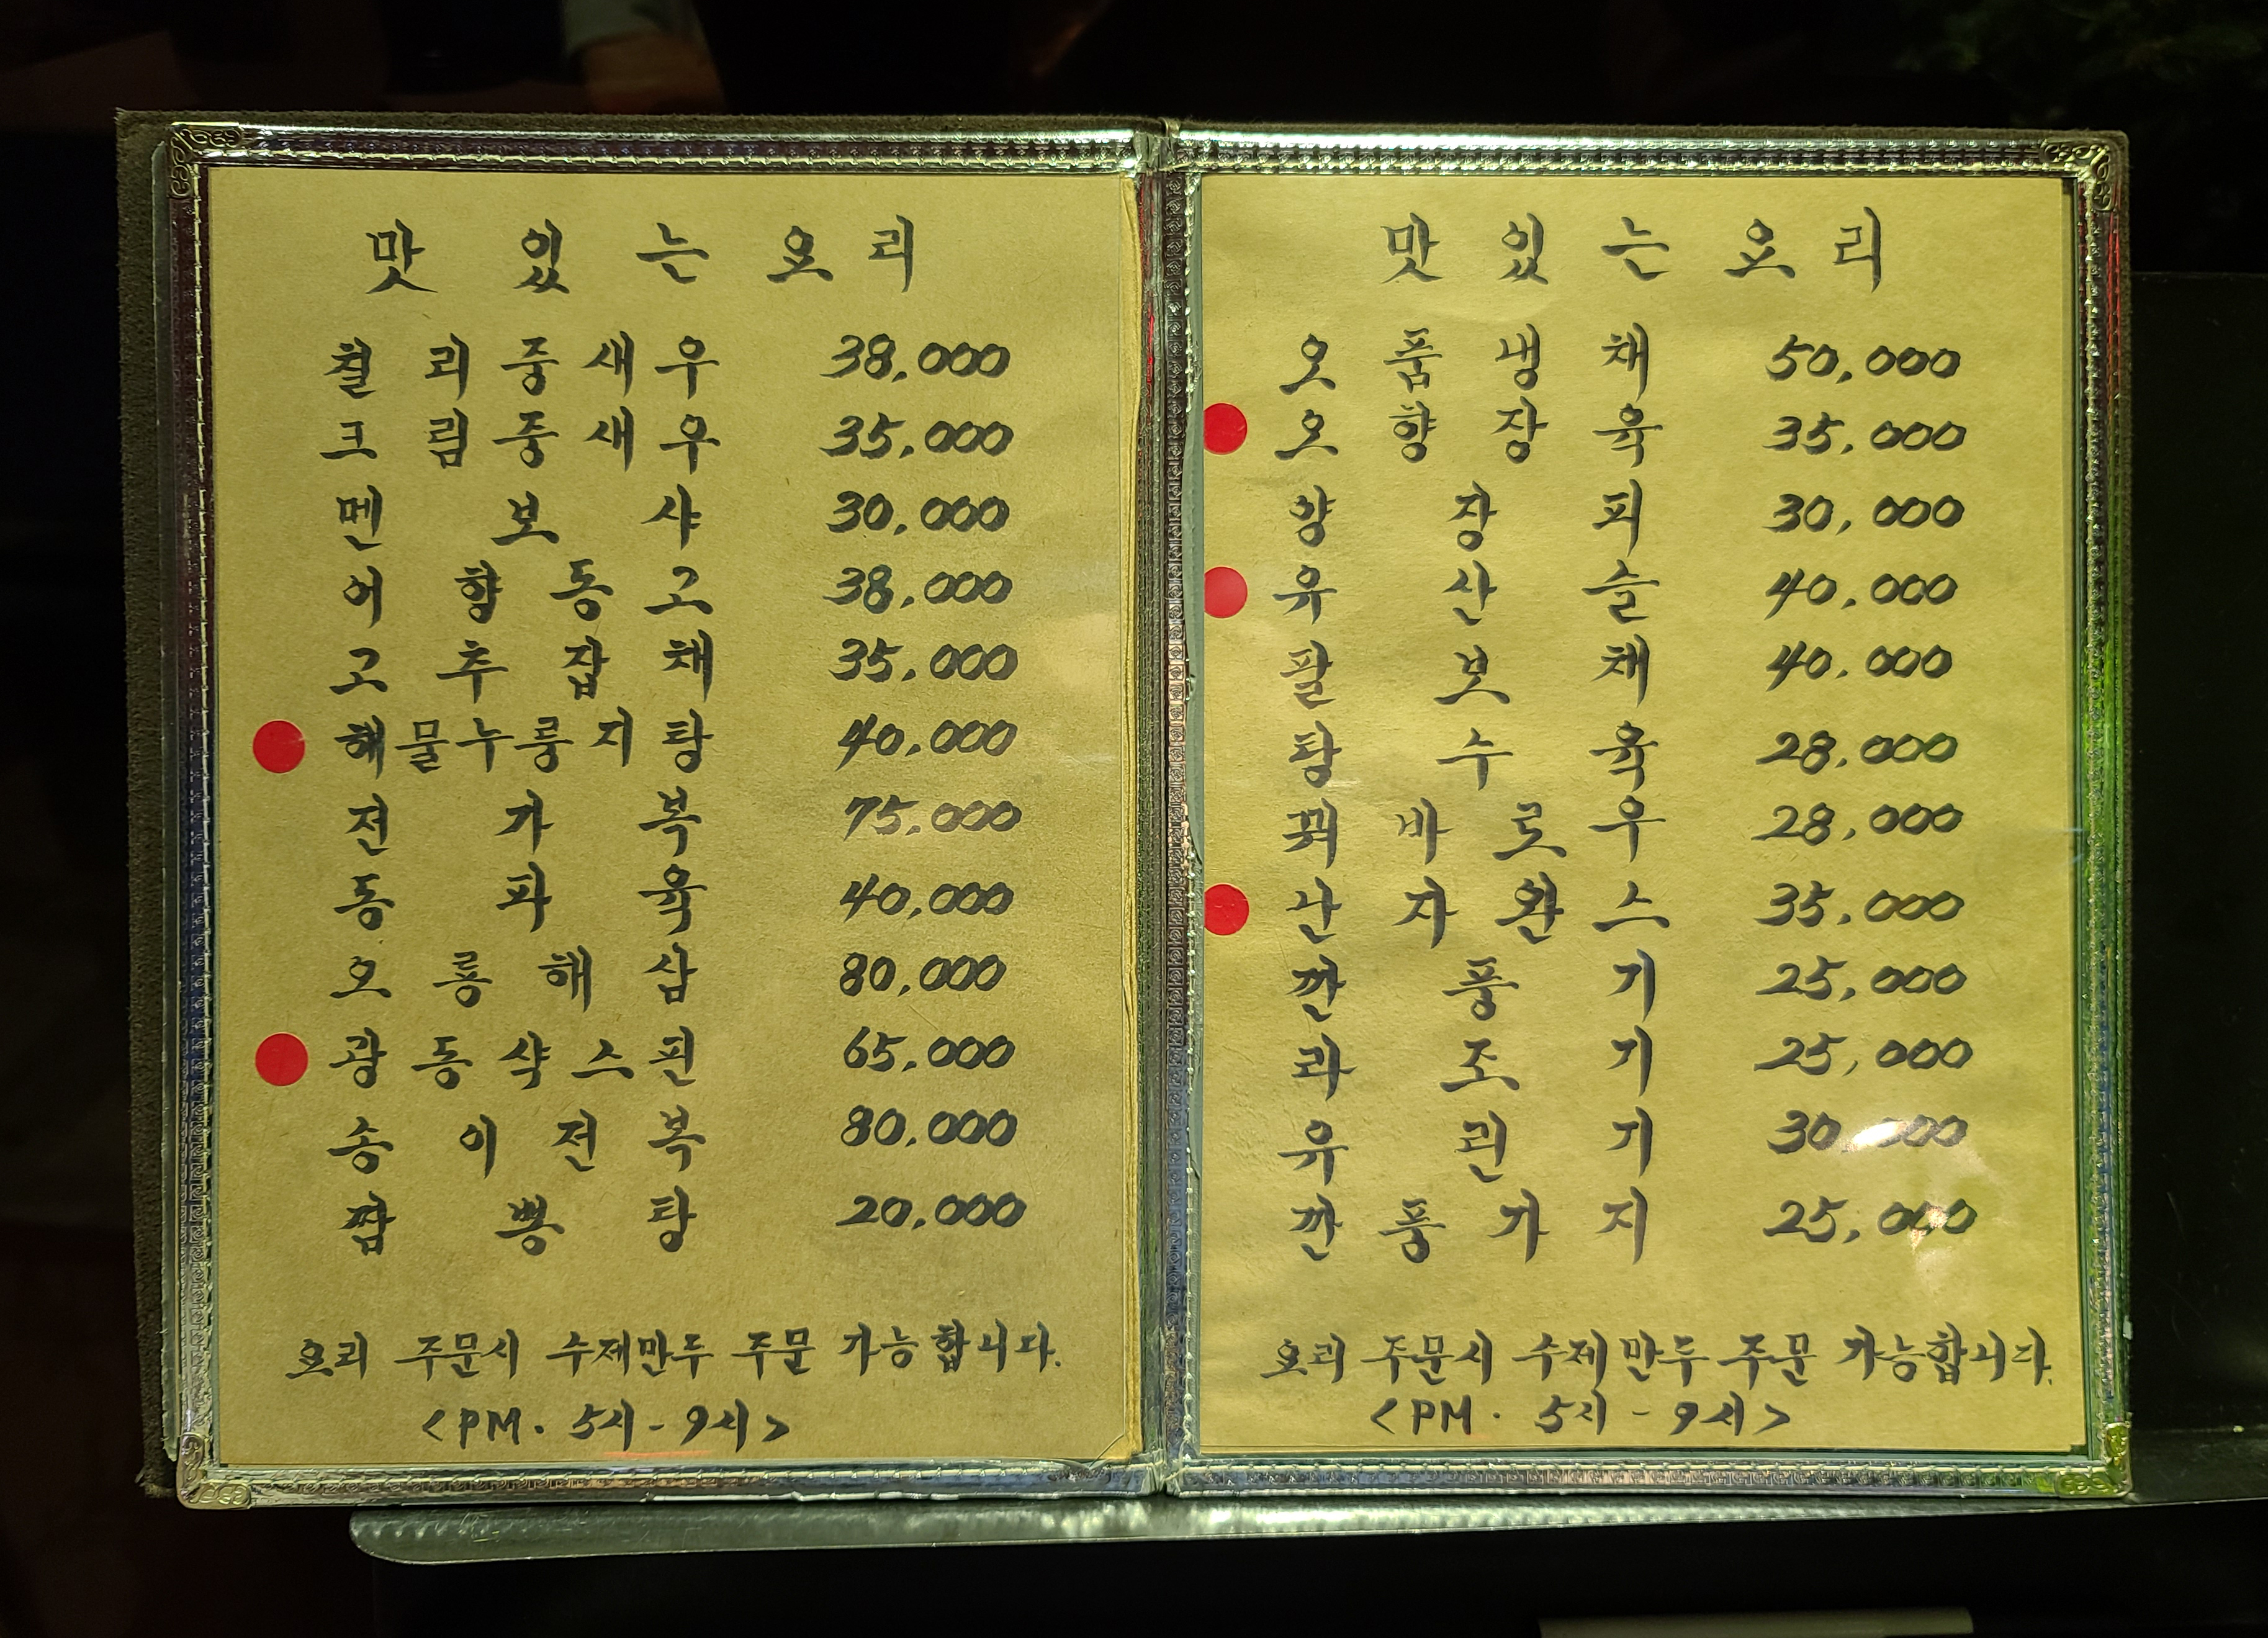 맛있는요리
칠리중새우 38,000
크림중새우 35,000
멘보샤 30,000
어향동고 38,000
고추잡채 35,000
해물누룽지탕 40,000
전가복 75,000
동파육 40,000
오룡해삼 80,000
광동샥스핀 65,000
송이전복 80,000
짬뽕탕 20,000
요리 주문시 수제만두 주문 가능합니다.
<PM. 5시-9시>
맛있는요리
오품냉채 50,000
오향장육 35,000
양장피 30,000
유산슬 40,000
팔보채 40.000
탕수육 28,000
꿔바로우 28,000
난자완스 35,000
깐풍기 25,000
라조기 25,000
유린기 30,000
깐풍가지 25,000
요리 주문시 수제만두 주문 가능합니다.
<PM. 5시-9시>